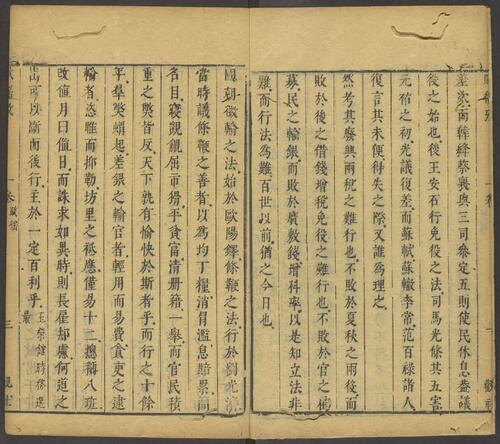 差衆而韓絳蔡襄與三司叅定五則使民休息蠱議
役之始也後王安石行免役之法司馬光條其五害
元祐之初光議復差而蘇軾蘇轍李常范百祿諧人
復言其未便得失之際又誰為理之
然考其廢興兩稅之難行也不敗於夏秋之兩後而
敗於後之借錢增稅免役之難行也不敗於官之催
募民之輸銀而敗於廣敷錢增科率以是知立法非
難而行法為難百世以前猶之今日也
國朝徵輸之法始於歐陽鐸條鞭之法行於劉光濟
當時議條鞭之善者以為均丁糧消冒濫息賠累簡
名目寢覬覦屈市猾平貧富清册籍一舉而官民積
重之獘皆反天下孰有愉快於斯者乎而行之十餘
年羣獘蝟起差銀之輸官者輕用而易費貪吏之逮
輸者恣睢而抑勒坊里之袛應僅易十二總稱八班
改值月曰值日而誅求如異時則長雇却慮何道之
出可以斷而後行至於一定百利乎